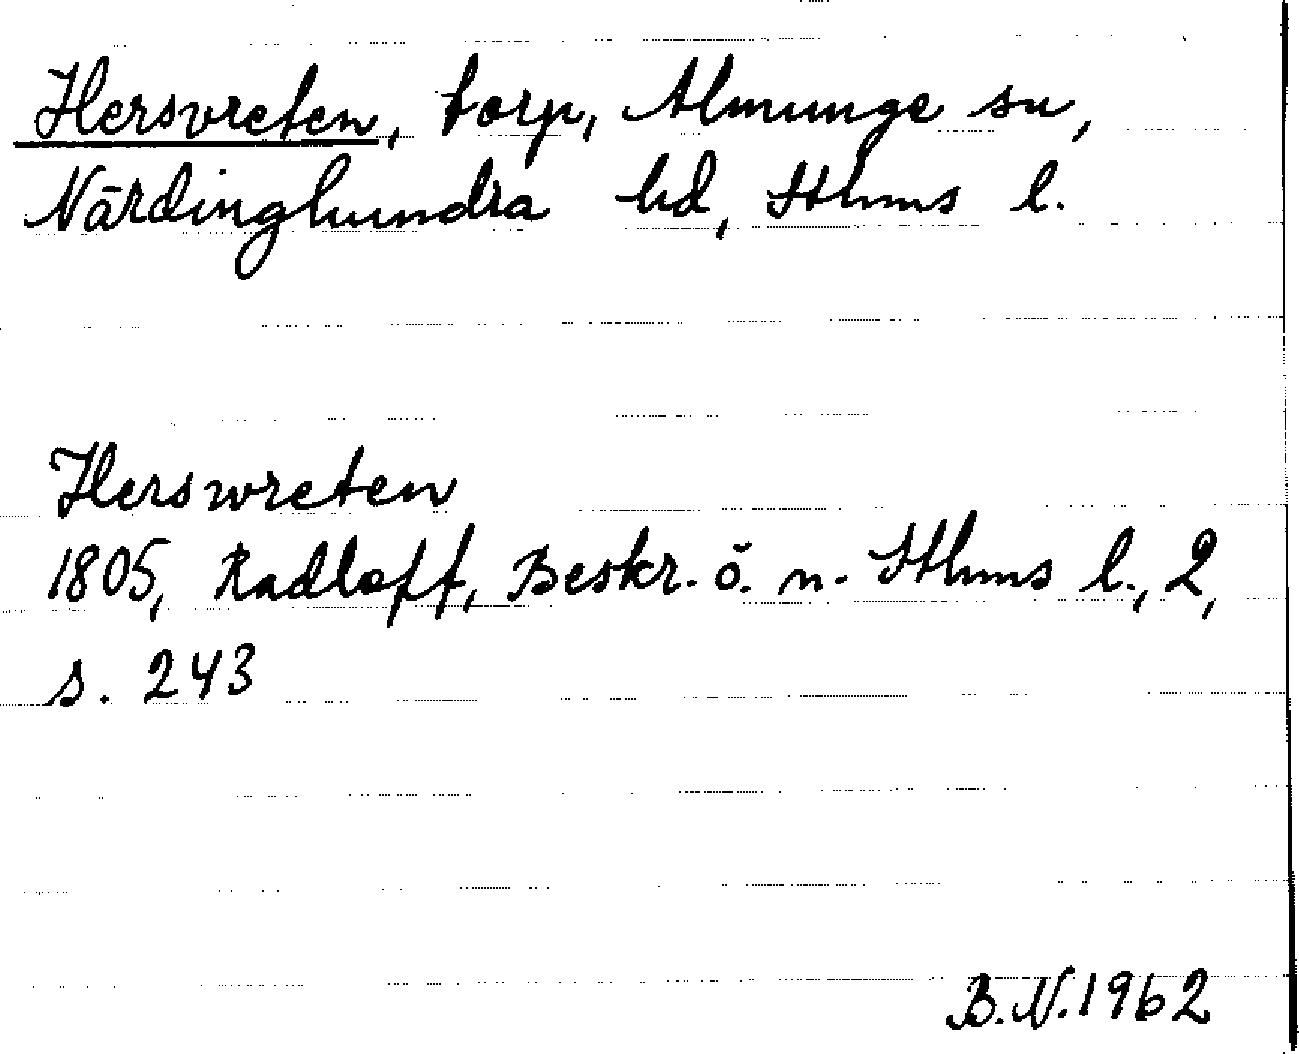 Hersvreten, torp, Almunge sn,
Närdinghundra hd, Sthms l.
Herswreten
1805, Radloff, Beskr. ö. n. Sthms l., 2,
s. 243
B.N. 1962